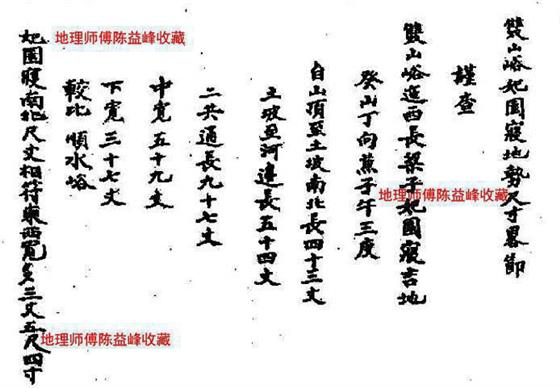 雙山峪妃園寢地勢尺寸畧節
謹查
雙山峪迤西長梨子妃園寢吉地
癸山丁向兼子午三度
自山頂至土坡南北長四十三丈
土坡至河邊長五十四丈
二共通長九十七丈
中寬五十九丈
下寬三十七丈
較比順水峪
妃園寢南北尺丈相符東西寬多三丈五尺四寸
地理师傅陈益峰收藏
地理师傅陈益峰收藏
地理师傅陈益峰收藏